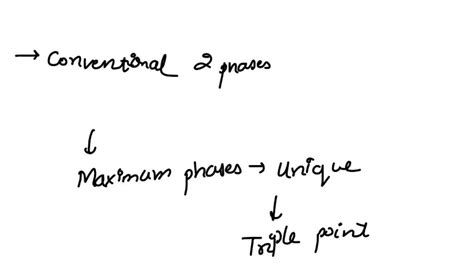 → Conventional 2 phases
↓
Maximum phases → Unique
↓
Triple point